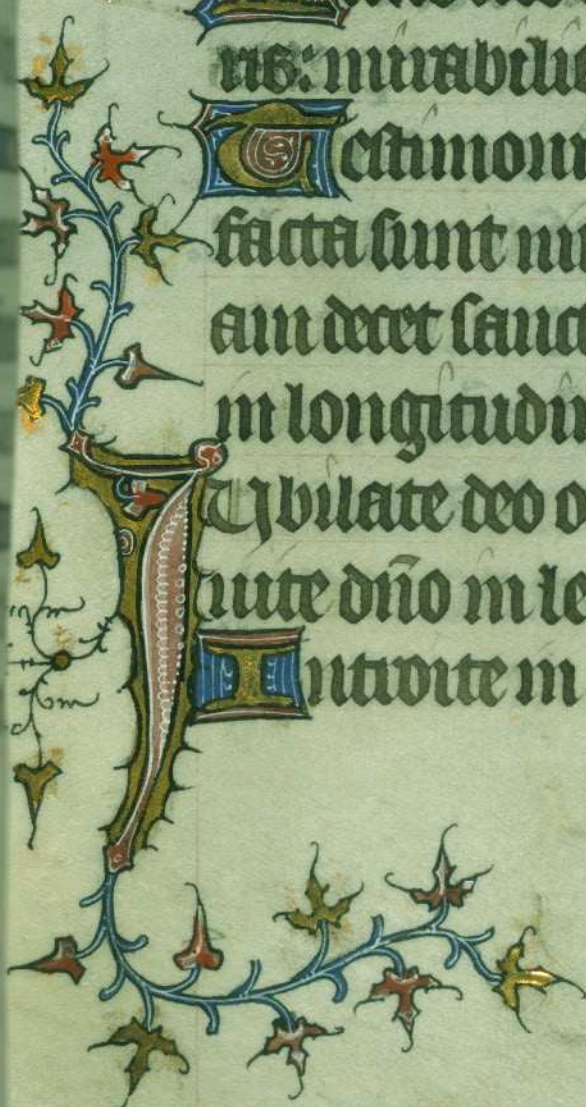 ris: mirabili
Testimoni
facta sunt ni
am decet sanct
in longitudin
IVbilate deo o
uite dño in le
Introite in